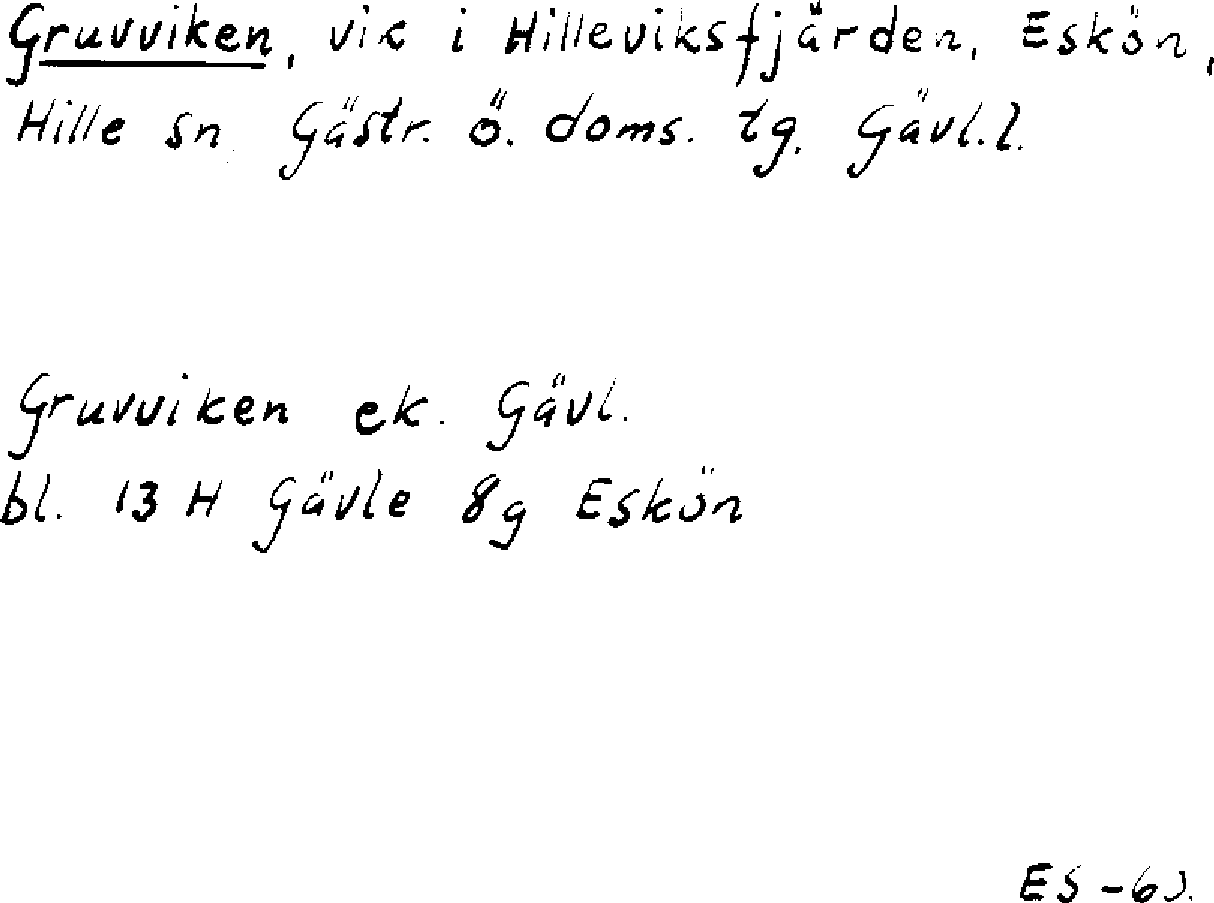 Gruvviken, vik i Hilleviksfjärden, Eskön,
Hille sn Gästr. ö. doms. tg. Gävl.l.
Gruvviken ek. Gävl.
bl. 13 H Gävle 8g Eskön